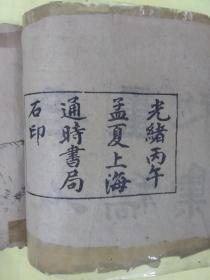 光緒丙午
孟夏上海
通時書局
石印